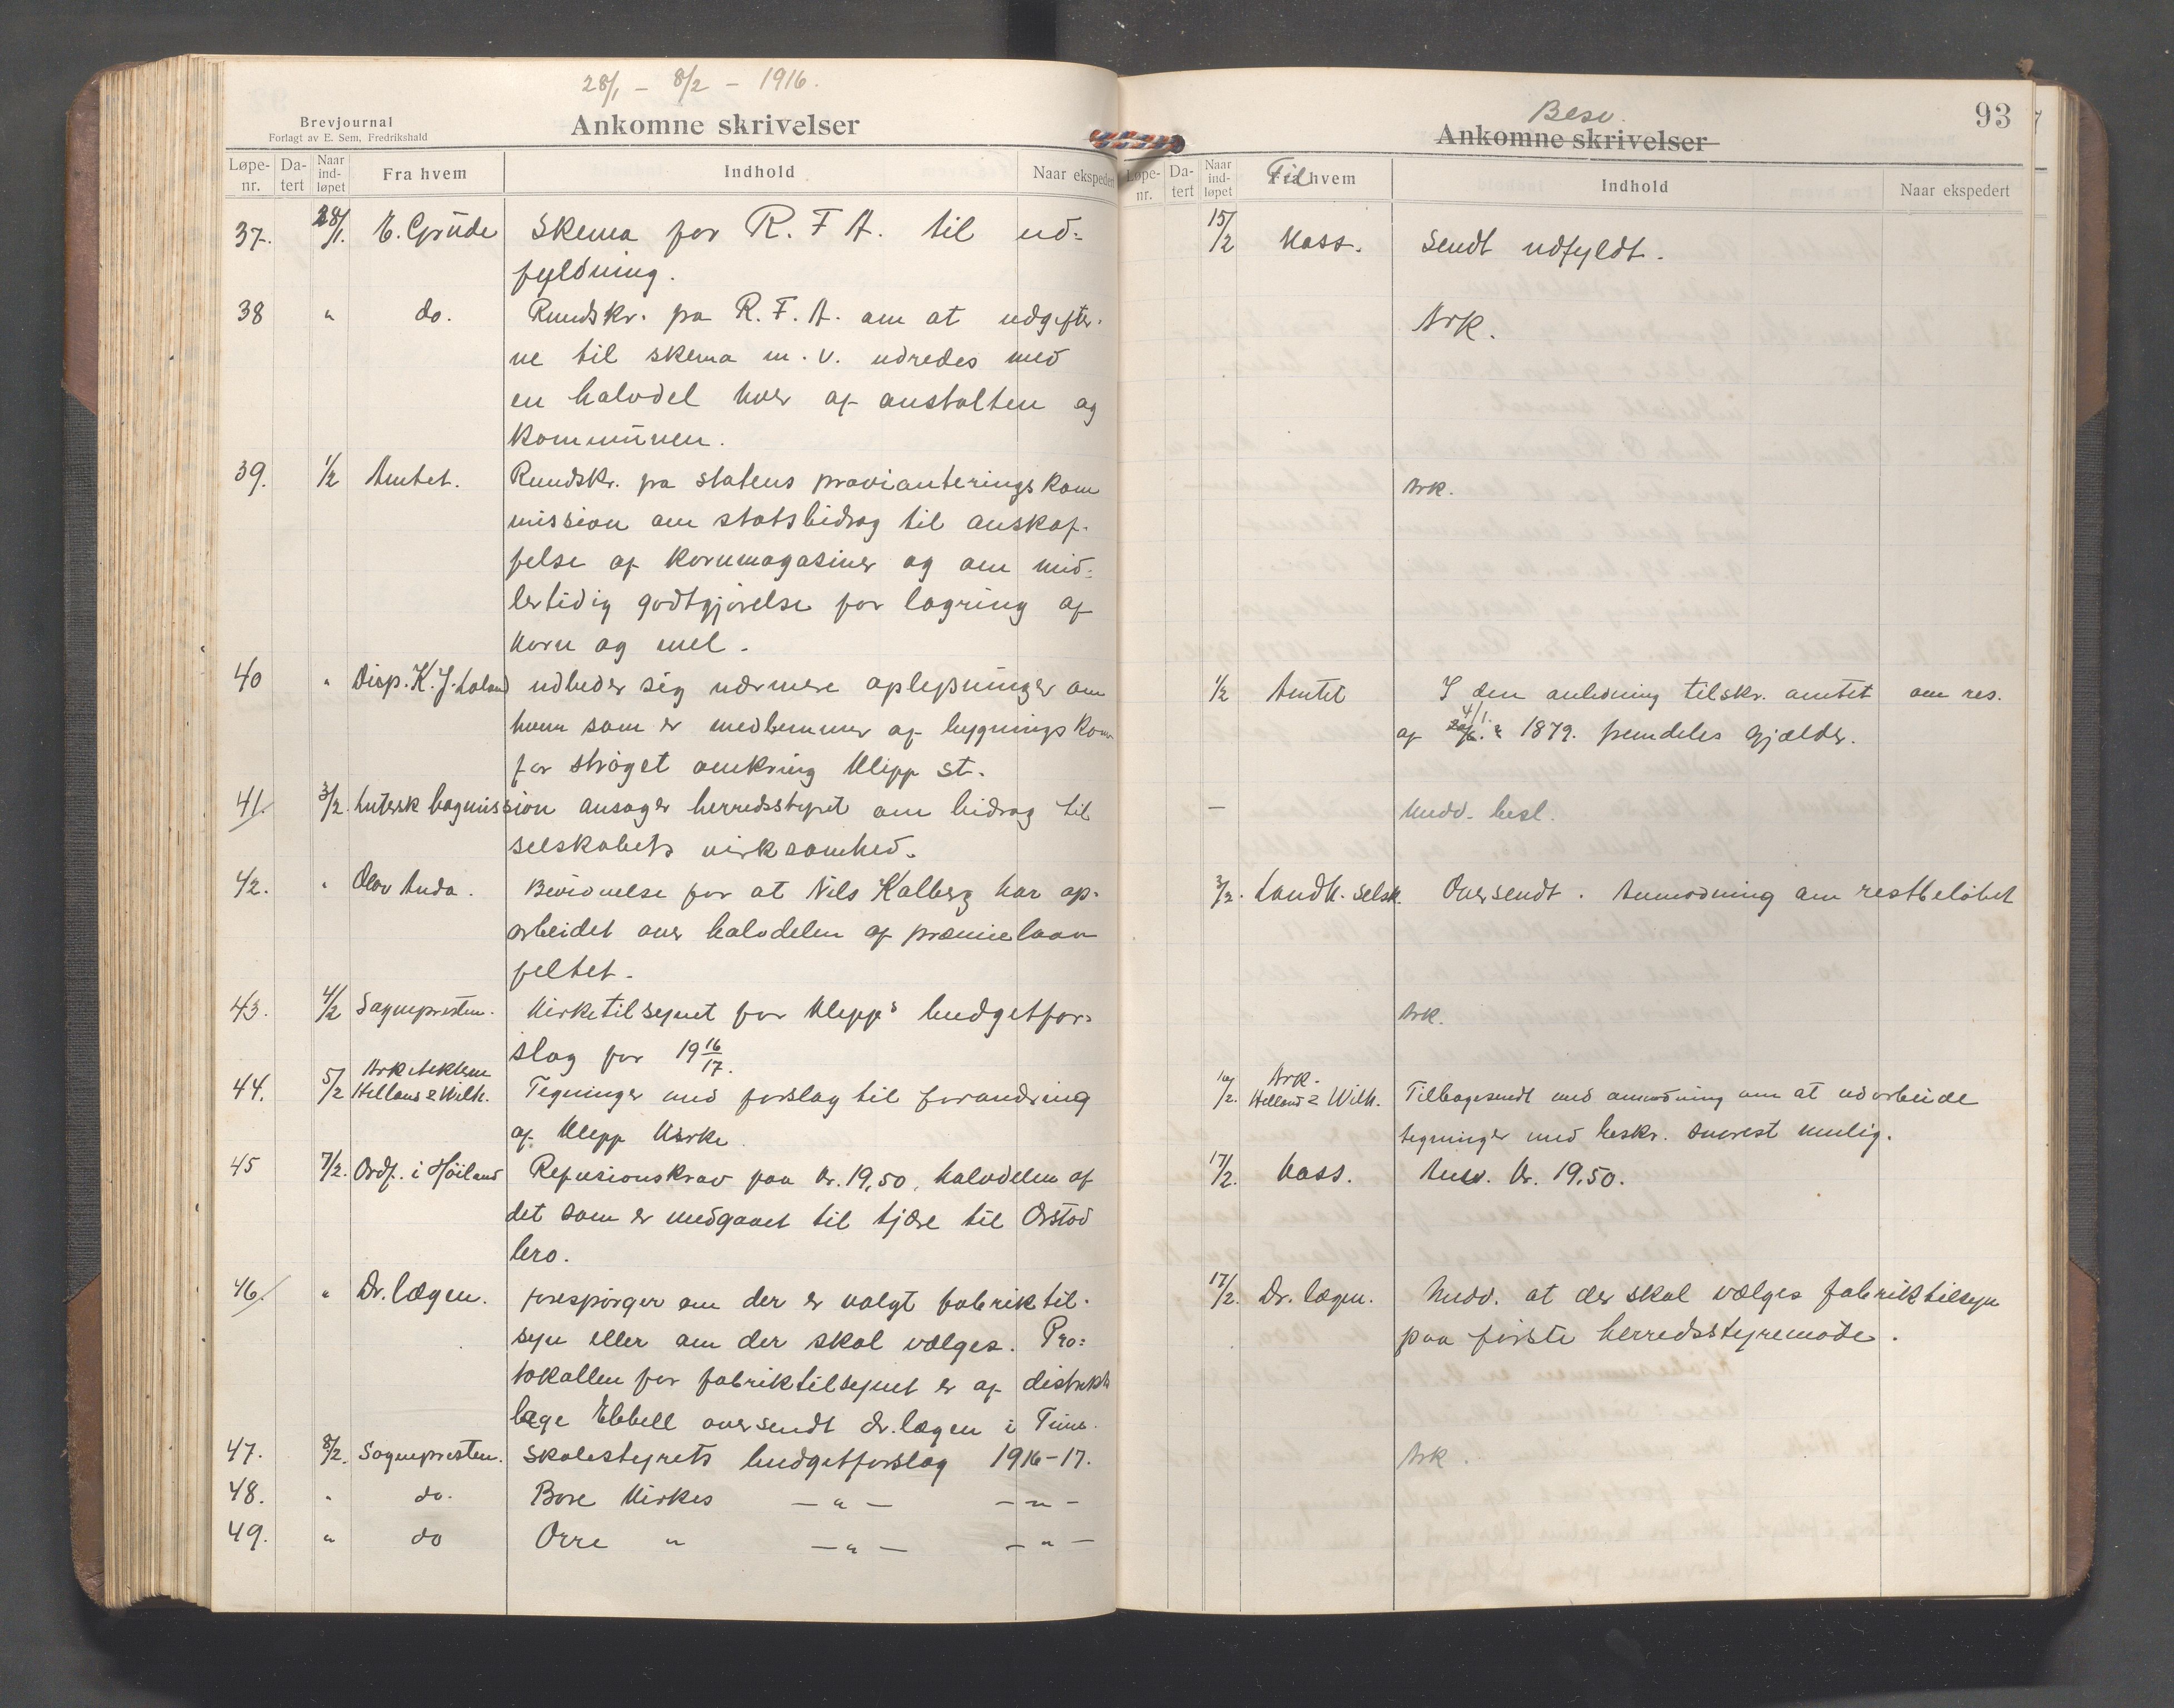 28/1 – 8/2 – 1916.
Brevjournal
Forlagt av E. Sem, Fredrikshald
Ankomne skrivelser
Løpe-nr. Da-tert Naar ind-løpet Fra hvem Indhold Naar ekspedert
37. 28/1. E. Grude Skema for R. F A. til ud=
fyldning.
38 " do. Rundskr. fra R. F. A. om at udgifter-
ne til skema m. v. udredes med
en halvdel hver af anstalten og
kommunen.
39. 1/2 Amtet. Rundskr. fra statens provianteringskom
mission om statsbidrag til anskaf-
felse af kornmagasiner og om mid=
lertidig godtgjørelse for lagring af
korn og mel.
40 " Disp. K. J. Laland udbeder sig nærmere oplysninger om
hvem som er medlemmer af bygningskom
for strøget omkring Klepp st.
41. 3/2. Lutersk bagmission ansøger herredsstyret om bidrag til
selskabets virksomhed.
42. " Olav Anda. Bevidnelse for at Nils Kalberg har op-
arbeidet over halvdelen af præmielaan
feltet.
43. 4/2 Sognepresten. Kirketilsynet for Klepp's budgetfor=
slag for 19 16/17.
44. 5/2 Arkitekterne
Helland & Wilh. Tegninger med forslag til forandring
af Klepp Kirke
45 7/2. Ordf. i Høiland Refusionskrav paa kr. 19,50, halvdelen af
det som er medgaaet til tjære til Orstad
bro.
46. " Dr. lægen. forespørger om der er valgt fabriktil-
syn eller om der skal vælges. Pro=
tokollen for fabriktilsynet er af distrikts
læge Ebbell oversendt dr. lægen i Time.
47. 8/2. Sognepresten. Skolestyrets budgetforslag 1916–17.
48. " do. Bore Kirkes – " – – " –
49. " do Orre " – " – – " –
Besv.
Ankomne skrivelser
93
Løpe-nr. Da-tert Naar ind-løpet Til hvem Indhold Naar ekspedert
15/2 Kass. Sendt udfyldt.
Ark.
Ark.
1/2 Amtet I den anledning tilskr. amtet om res.
af 4/1. 1879. fremdeles gjælder.
– Unov. besl.
3/2. Landh. selsk. Oversendt. Anmodning om restbeløbet
Ark.
10/2. Ark.
Helland & Wilh. Tilbagesendt med anmodning om at udarbeide
tegninger med beskr. snarest mulig.
17/2. Kass. Anv. kr. 19,50.
17/2. Dr. lægen. Medd. at der skal vælges fabriktilsyn
paa første herredsstyremøde.
Ark.